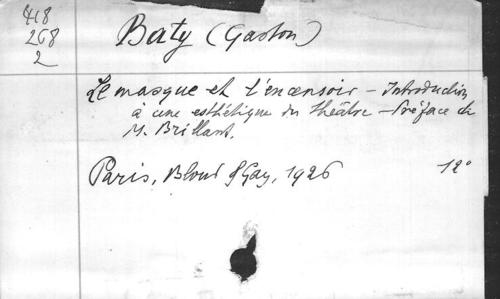 418
268
2
Baty (Gaston)
Le masque et l'encensoir - Introduction
à une esthétique du théâtre - Préface de
M. Brillant.
Paris, Bloud & Gay, 1926 12°